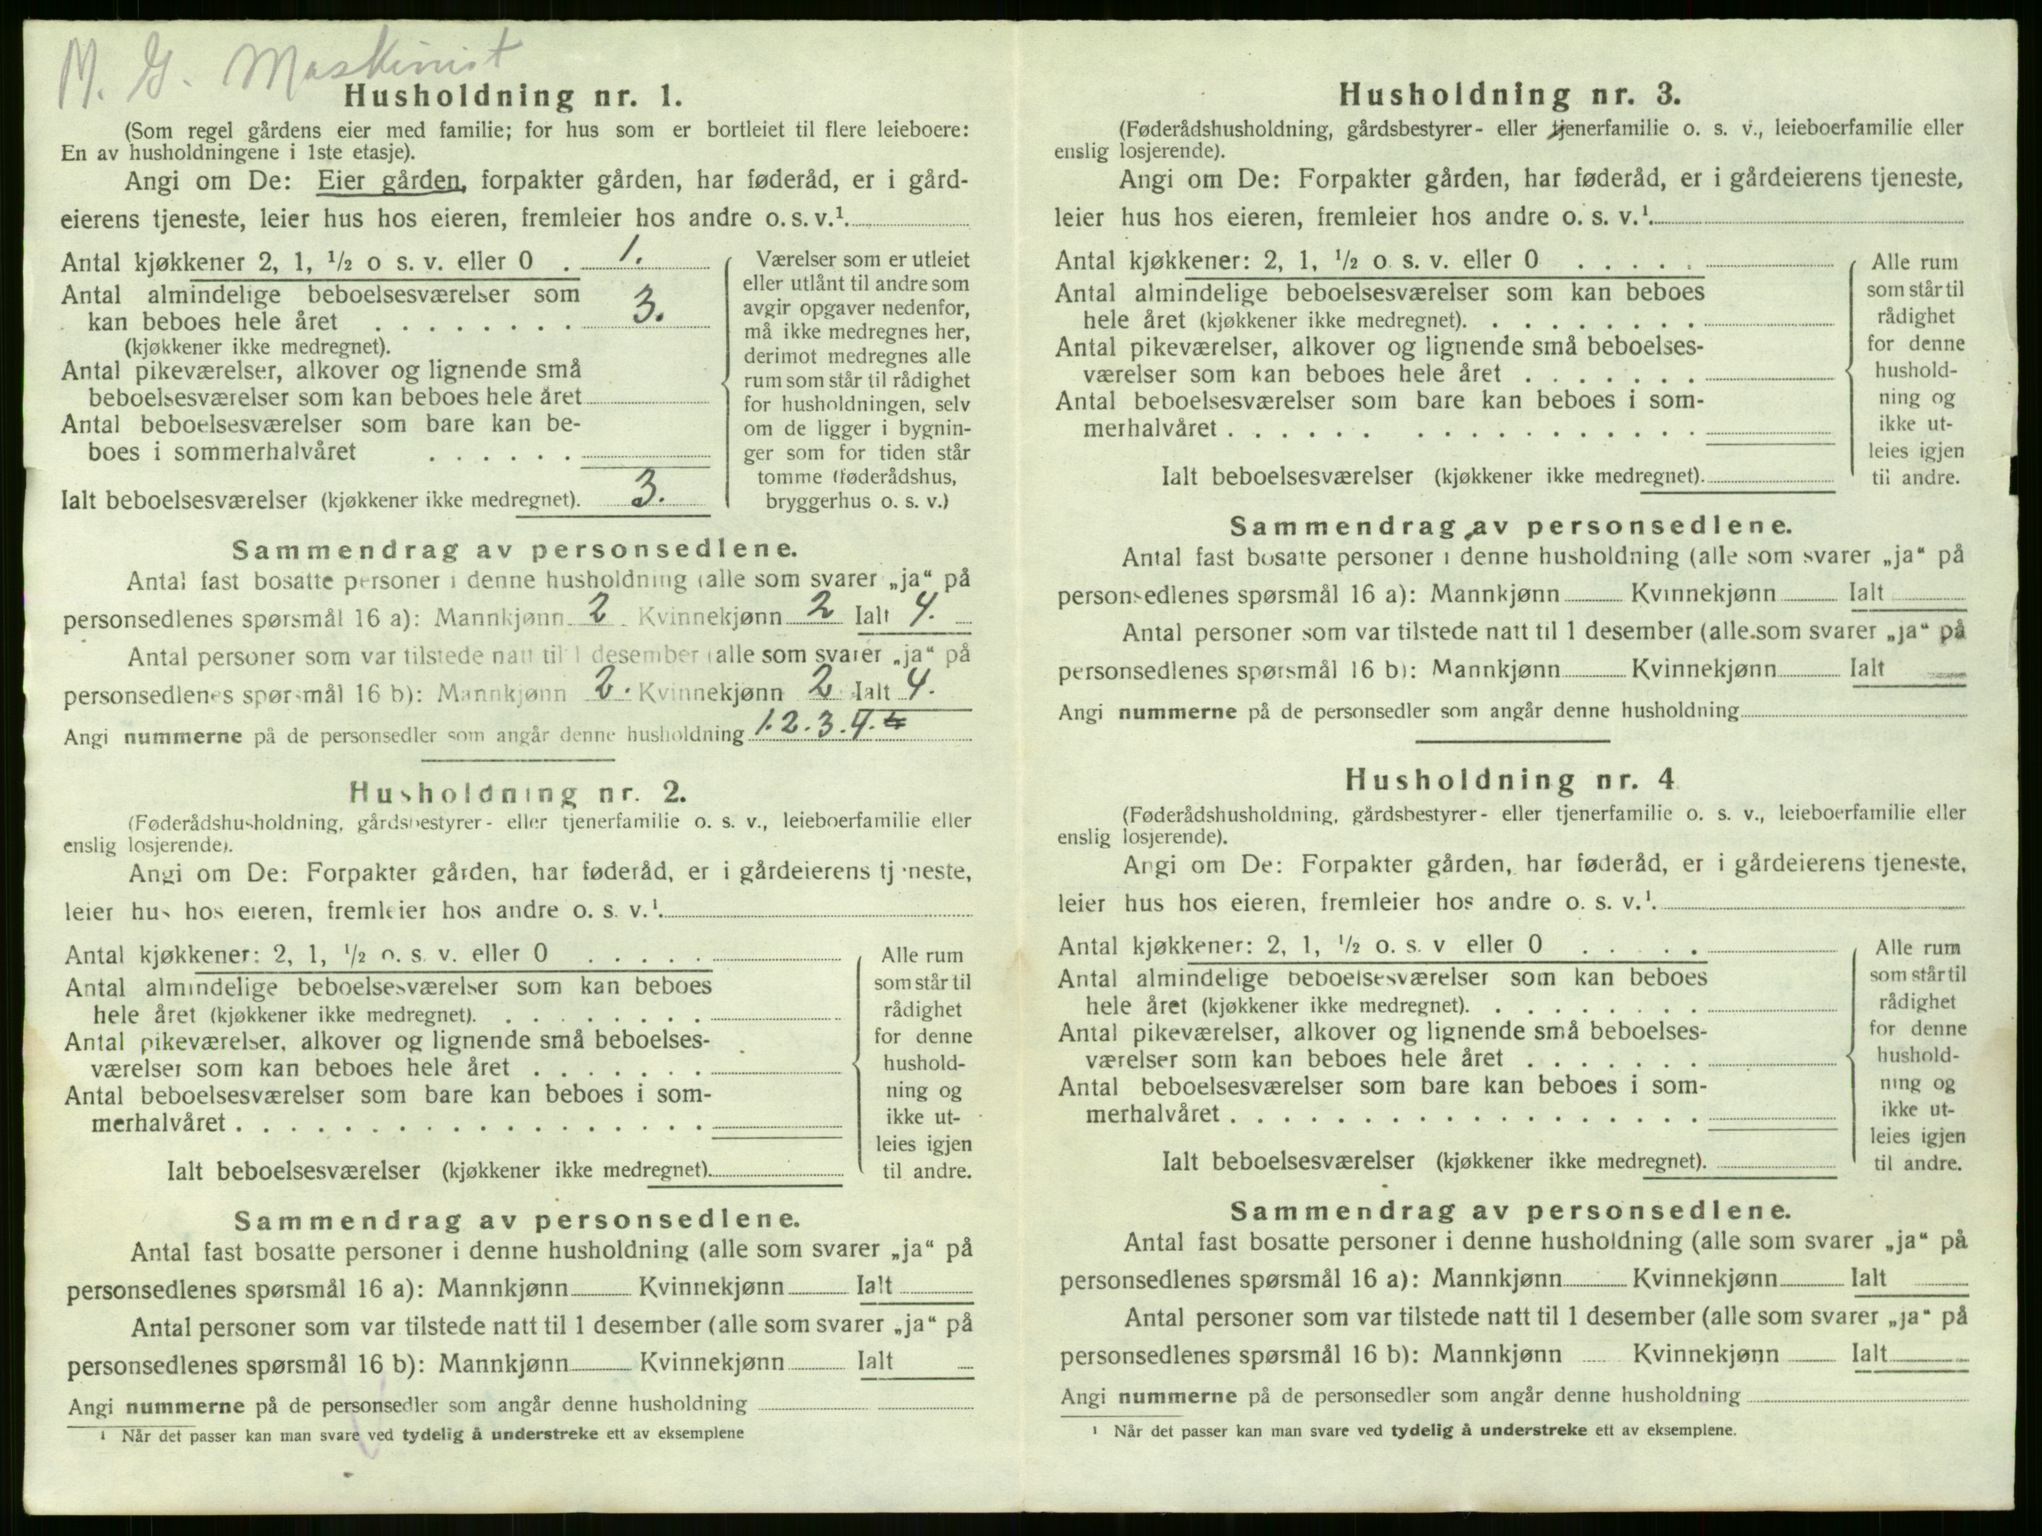 M. G. Maskinist
Husholdning nr. 1.
(Som regel gårdens eier med familie; for hus som er bortleiet til flere leieboere:
En av husholdningene i 1ste etasje).
Angi om De: Eier gården, forpakter gården, har føderåd, er i gård-
eierens tjeneste, leier hus hos eieren, fremleier hos andre o. s. v.¹
Antal kjøkkener 2, 1, ½ o s. v. eller 0 . 1.
Antal almindelige beboelsesværelser som
kan beboes hele året . . . . . . . . 3.
(kjøkkener ikke medregnet).
Antal pikeværelser, alkover og lignende små
beboelsesværelser som kan beboes hele året
Antal beboelsesværelser som bare kan be-
boes i sommerhalvåret . . . . . .
Ialt beboelsesværelser (kjøkkener ikke medregnet). 3.
Værelser som er utleiet
eller utlånt til andre som
avgir opgaver nedenfor,
må ikke medregnes her,
derimot medregnes alle
rum som står til rådighet
for husholdningen, selv
om de ligger i bygnin-
ger som for tiden står
tomme (føderådshus,
bryggerhus o. s. v.)
Sammendrag av personsedlene.
Antal fast bosatte personer i denne husholdning (alle som svarer „ja“ på
personsedlenes spørsmål 16 a): Mannkjønn 2 Kvinnekjønn 2 Ialt 4.
Antal personer som var tilstede natt til 1 desember (alle som svarer „ja“ på
personsedlenes spørsmål 16 b): Mannkjønn 2. Kvinnekjønn 2 Ialt 4.
Angi nummerne på de personsedler som angår denne husholdning 1. 2. 3. 4.
Husholdning nr. 2.
(Føderådshusholdning, gårdsbestyrer- eller tjenerfamilie o. s. v., leieboerfamilie eller
enslig losjerende).
Angi om De: Forpakter gården, har føderåd, er i gårdeierens tjeneste,
leier hus hos eieren, fremleier hos andre o. s. v.¹
Antal kjøkkener: 2, 1, ½ o. s. v. eller 0 . . . . .
Antal almindelige beboelsesværelser som kan beboes
hele året (kjøkkener ikke medregnet). . . . . . . . .
Antal pikeværelser, alkover og lignende små beboelses-
værelser som kan beboes hele året . . . . . . .
Antal beboelsesværelser som bare kan beboes i som-
merhalvåret . . . . . . . . . . . . . . . . . .
Ialt beboelsesværelser (kjøkkener ikke medregnet).
Alle rum
som står til
rådighet
for denne
hushold-
ning og
ikke ut-
leies igjen
til andre.
Sammendrag av personsedlene.
Antal fast bosatte personer i denne husholdning (alle som svarer „ja“ på
personsedlenes spørsmål 16 a): Mannkjønn Kvinnekjønn Ialt
Antal personer som var tilstede natt til 1 desember (alle som svarer „ja“ på
personsedlenes spørsmål 16 b): Mannkjønn Kvinnekjønn Ialt
Angi nummerne på de personsedler som angår denne husholdning
¹ Når det passer kan man svare ved tydelig å understreke ett av eksemplene
Husholdning nr. 3.
(Føderådshusholdning, gårdsbestyrer- eller tjenerfamilie o. s. v., leieboerfamilie eller
enslig losjerende).
Angi om De: Forpakter gården, har føderåd, er i gårdeierens tjeneste,
leier hus hos eieren, fremleier hos andre o. s. v.¹
Antal kjøkkener: 2, 1, ½ o. s. v. eller 0 . . . . .
Antal almindelige beboelsesværelser som kan beboes
hele året (kjøkkener ikke medregnet). . . . . . . . .
Antal pikeværelser, alkover og lignende små beboelses-
værelser som kan beboes hele året . . . . . . .
Antal beboelsesværelser som bare kan beboes i som-
merhalvåret . . . . . . . . . . . . . . . . . .
Ialt beboelsesværelser (kjøkkener ikke medregnet).
Alle rum
som står til
rådighet
for denne
hushold-
ning og
ikke ut-
leies igjen
til andre.
Sammendrag av personsedlene.
Antal fast bosatte personer i denne husholdning (alle som svarer „ja“ på
personsedlenes spørsmål 16 a): Mannkjønn Kvinnekjønn Ialt
Antal personer som var tilstede natt til 1 desember (alle som svarer „ja“ på
personsedlenes spørsmål 16 b): Mannkjønn Kvinnekjønn Ialt
Angi nummerne på de personsedler som angår denne husholdning
Husholdning nr. 4
(Føderådshusholdning, gårdsbestyrer- eller tjenerfamilie o. s. v., leieboerfamilie eller
enslig losjerende).
Angi om De: Forpakter gården, har føderåd, er i gårdeierens tjeneste,
leier hus hos eieren, fremleier hos andre o. s. v.¹.
Antal kjøkkener: 2, 1, ½ o. s. v eller 0 . . . . .
Antal almindelige beboelsesværelser som kan beboes
hele året (kjøkkener ikke medregnet). . . . . . . . .
Antal pikeværelser, alkover og lignende små beboelses-
værelser som kan beboes hele året . . . . . . .
Antal beboelsesværelser som bare kan beboes i som-
merhalvåret . . . . . . . . . . . . . . . . . .
Ialt beboelsesværelser (kjøkkener ikke medregnet).
Alle rum
som står til
rådighet
for denne
hushold-
ning og
ikke ut-
leies igjen
til andre.
Sammendrag av personsedlene.
Antal fast bosatte personer i denne husholdning (alle som svarer „ja“ på
personsedlenes spørsmål 16 a): Mannkjønn Kvinnekjønn Ialt
Antal personer som var tilstede natt til 1 desember (alle som svarer „ja“ på
personsedlenes spørsmål 16 b): Mannkjønn Kvinnekjønn Ialt
Angi nummerne på de personsedler som angår denne husholdning
¹ Når det passer kan man svare ved tydelig å understreke ett av eksemplene.